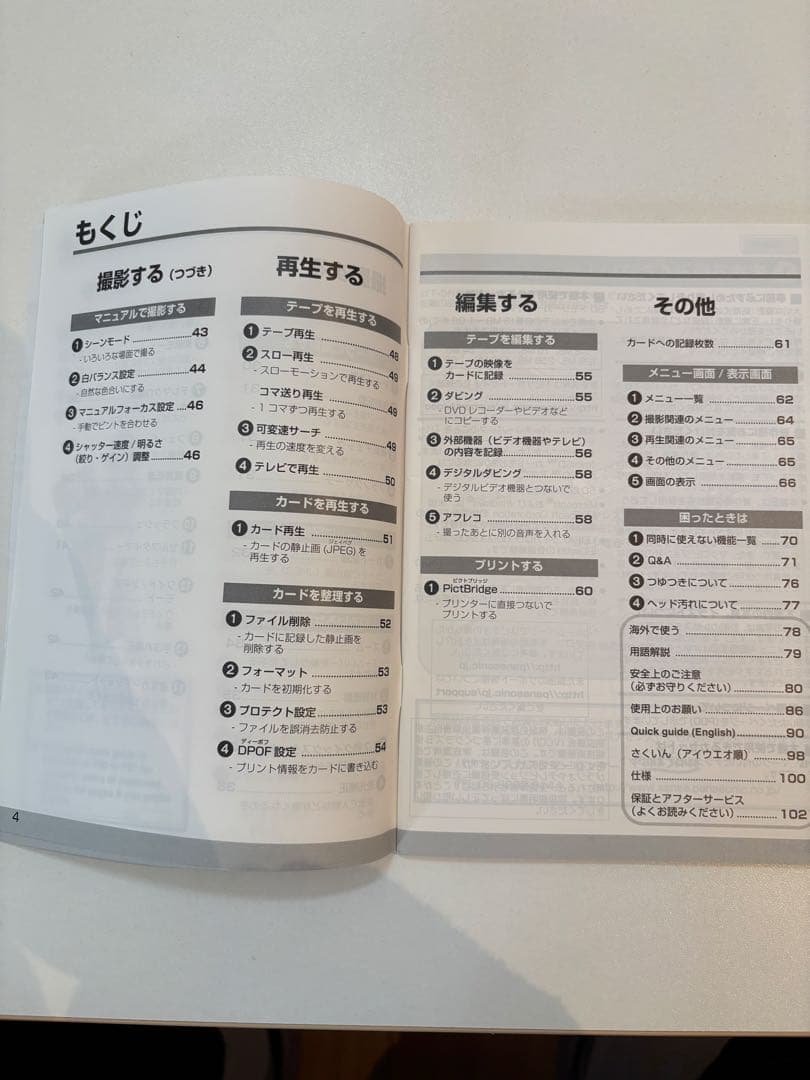 もくじ
撮影する（つづき）
マニュアルで撮影する
❶ シーンモード ..................43
- いろいろな場面で撮る
❷ 白バランス設定 ..............44
- 自然な色合いにする
❸ マニュアルフォーカス設定 ....46
- 手動でピントを合わせる
❹ シャッター速度 / 明るさ
（絞り・ゲイン）調整 ..........46
再生する
テープを再生する
❶ テープ再生 ..................48
❷ スロー再生 ..................49
- スローモーションで再生する
コマ送り再生 ..................49
- 1 コマずつ再生する
❸ 可変速サーチ ..................49
- 再生の速度を変える
❹ テレビで再生 ..................50
カードを再生する
❶ カード再生 ..................51
ジェイペグ
- カードの静止画 (JPEG) を
再生する
カードを整理する
❶ ファイル削除 ..................52
- カードに記録した静止画を
削除する
❷ フォーマット ..................53
- カードを初期化する
❸ プロテクト設定 ..................53
- ファイルを誤消去防止する
ディーポフ
❹ DPOF 設定 ..................54
- プリント情報をカードに書き込む
4
編集する
テープを編集する
❶ テープの映像を
カードに記録 ..................55
❷ ダビング ..................55
- DVD レコーダーやビデオなど
にコピーする
❸ 外部機器（ビデオ機器やテレビ）
の内容を記録 ..................56
❹ デジタルダビング ..................58
- デジタルビデオ機器とつないで
使う
❺ アフレコ ..................58
- 撮ったあとに別の音声を入れる
プリントする
ピクトブリッジ
❶ PictBridge ..................60
- プリンターに直接つないで
プリントする
その他
カードへの記録枚数 ..................61
メニュー画面 / 表示画面
❶ メニュー一覧 ..................62
❷ 撮影関連のメニュー ..............64
❸ 再生関連のメニュー ..............65
❹ その他のメニュー ..................65
❺ 画面の表示 ..................66
困ったときは
❶ 同時に使えない機能一覧 .....70
❷ Q&A ..................71
❸ つゆつきについて ..............76
❹ ヘッド汚れについて ............77
海外で使う ..................78
用語解説 ..................79
安全上のご注意
（必ずお守りください） ..............80
使用上のお願い ..................86
Quick guide (English) ..............90
さくいん（アイウエオ順） .........98
仕様 ..................100
保証とアフターサービス
（よくお読みください） ..............102